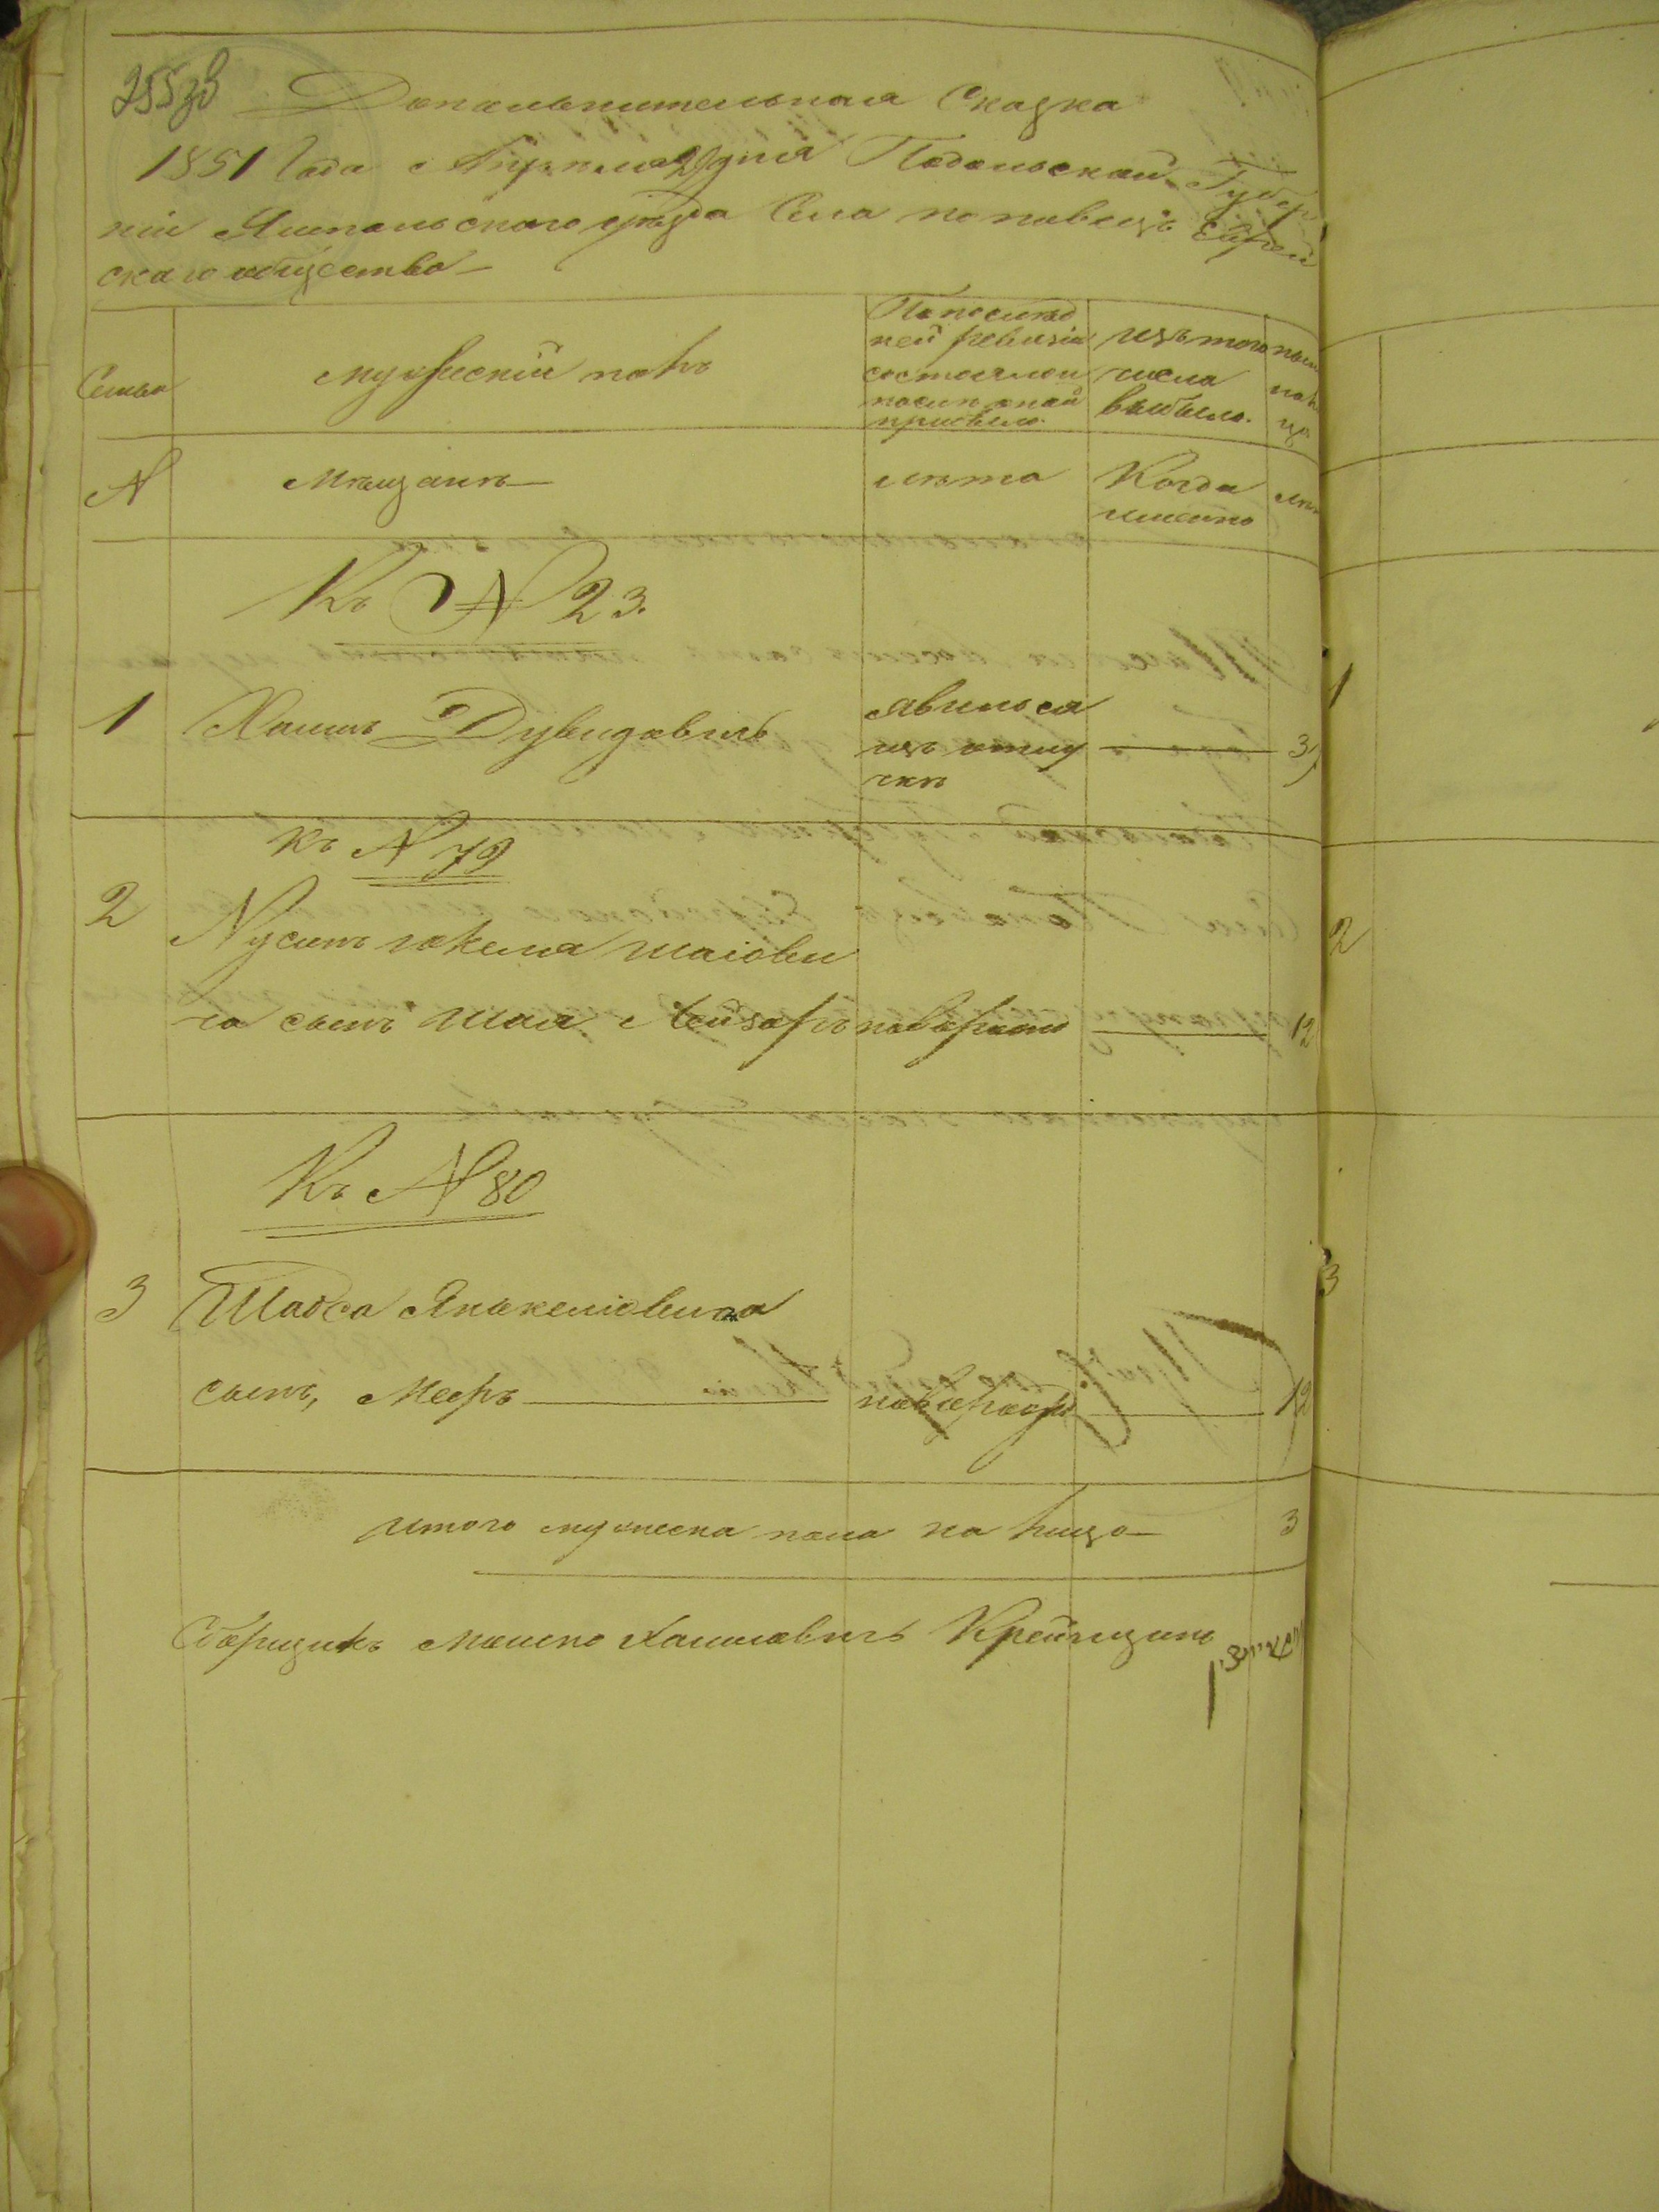 255зв
Дополнительная Сказка
1851 Года Апреля 29 дня Подольской Губер
нiи Ямпольского уезда Села поповецъ Еврей
скаго общества
Семьи
мужескiй полъ
По послед
ней ревизiи
состояло и
после оной
прибыло.
изъ того
числа
выбыло.
ныне
на ли
цо
N
Мещанъ
лета
Когда
именно
лета
Къ N 23.
1 Хаимъ Дувидовичъ
явился
изъ отлу
чки
3
1
къ N 79
2 Нусинъ иокеля шаiови
2
ча сынъ Шая Лейзоръ новорожд 12
Къ N 80
3 Шабса Янькелiовича
3
сынъ, Мееръ новорожд 12
итого мужеска пола на лицо 3
Сборщикъ Мошко Хаимовичъ Крейчманъ